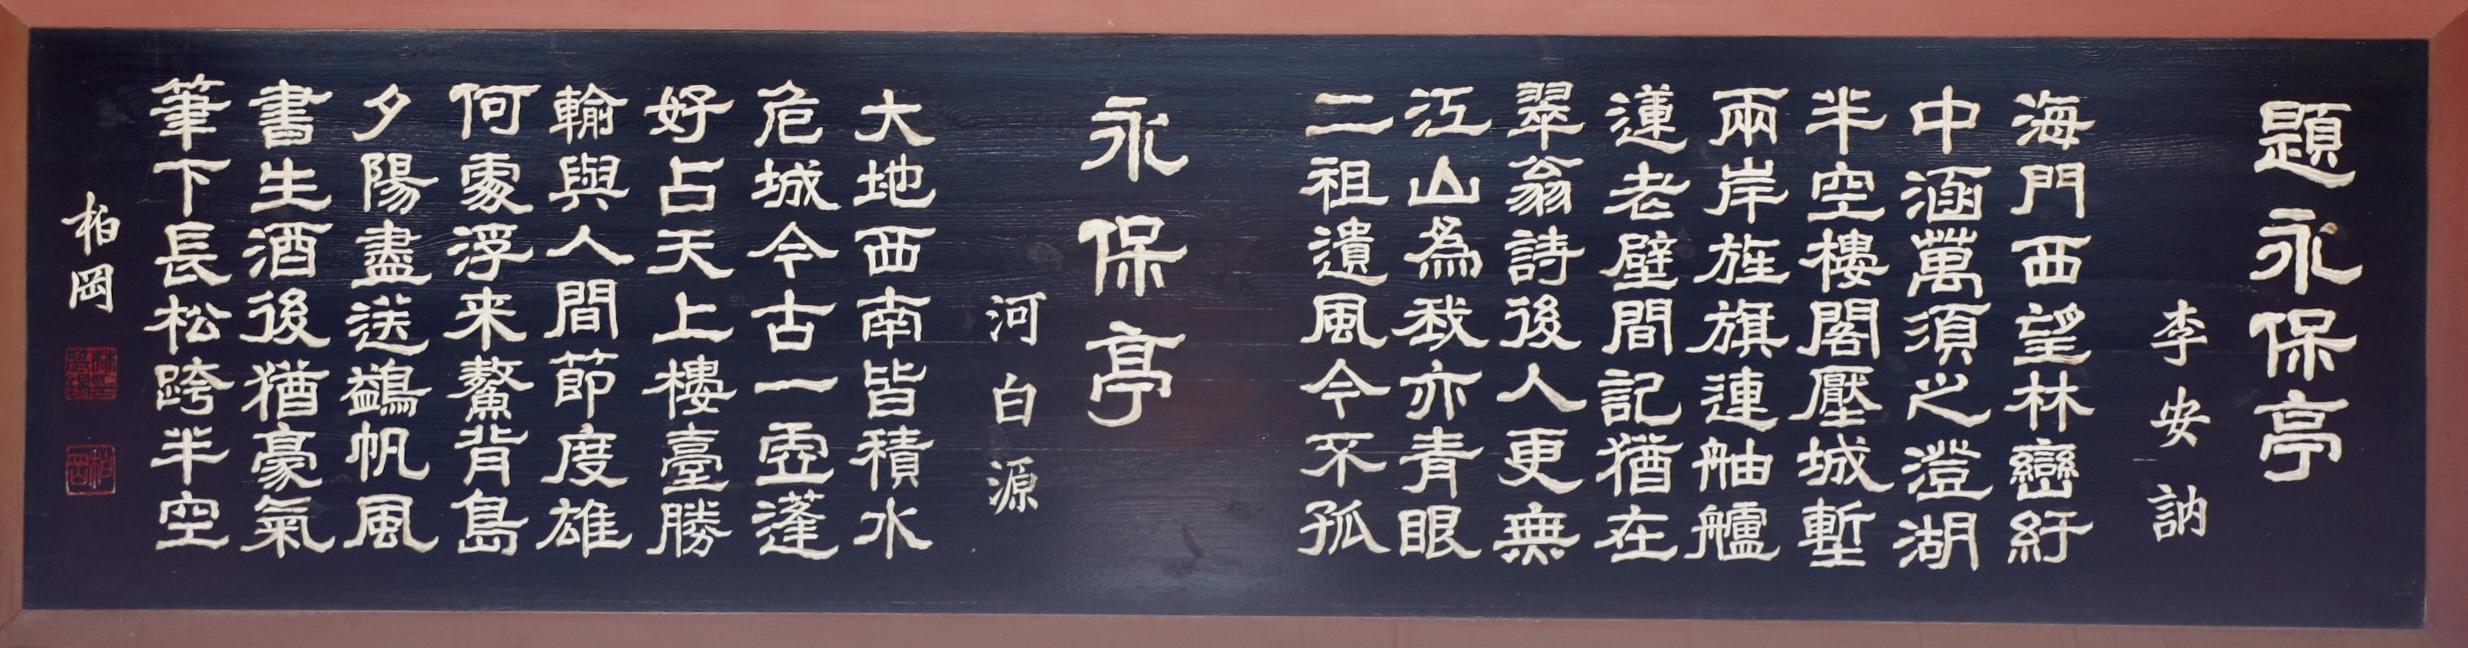 題永保亭
李安訥
海門西望林巒紆
中涵萬須之澄湖
半空樓閣壓城塹
兩岸旌旗連舳艫
蓮老壁間記猶在
翠翁詩後人更無
江山為我亦青眼
二祖遺風今不孤
永保亭
河白源
大地西南皆積水
危城今古一壺蓬
好占天上樓臺勝
輸與人間節度雄
何處浮来鰲背島
夕陽盡送鷁帆風
書生酒後猶豪氣
筆下長松跨半空
柏岡